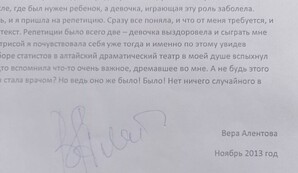 де, где был нужен ребенок, а девочка, играющая эту роль заболела.
, и я пришла на репетицию. Сразу все поняла, и что от меня требуется, и
текст. Репетиции было всего две – девочка выздоровела и сыграть мне
трисой я почувствовала себя уже тогда и именно по этому увидев
боре статистов в алтайский драматический театр в моей душе вспыхнул
то вспомнила что-то очень важное, дремавшее во мне. А не будь этого
стала врачом? Но ведь оно же было! Было! Нет ничего случайного в
Вера Алентова
Ноябрь 2013 год